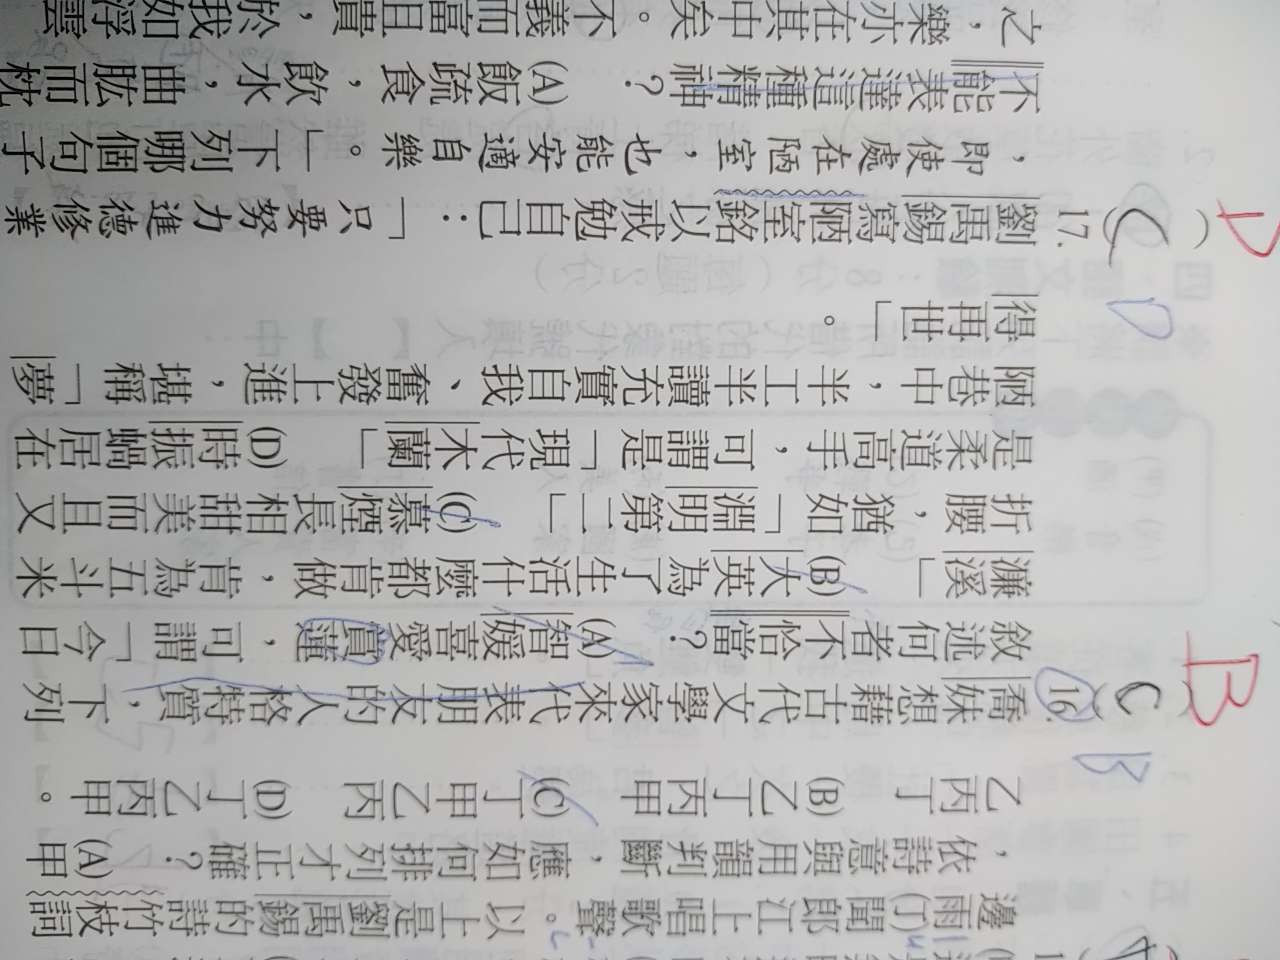 邊雨(丁)聞郎江上唱歌聲。以上是劉禹錫的詩竹枝詞
，依詩意與用韻判斷，應如何排列才正確？(A)甲
乙丙丁 (B)乙丁丙甲 (C)丁甲乙丙 (D)丁乙丙甲。
B
B
(C)16.喬妹想藉古代文學家來代表朋友的人格特質，下列
敘述何者不恰當？ (A)智媛喜愛賞蓮，可謂「今日
濂溪」 (B)大英為了生活什麼都肯做，肯為五斗米
折腰，猶如「淵明第二」 (C)慕煙長相甜美而且又
是柔道高手，可謂是「現代木蘭」 (D)時振蝸居在
陋巷中，半工半讀充實自我、奮發上進，堪稱「夢
得再世」。
D
D
(C)17.劉禹錫寫陋室銘以戒勉自己：「只要努力進德修業
，即使處在陋室，也能安適自樂。」下列哪個句子
不能表達這種精神？ (A)飯疏食，飲水，曲肱而枕
之，樂亦在其中矣。不義而富且貴，於我如浮雲